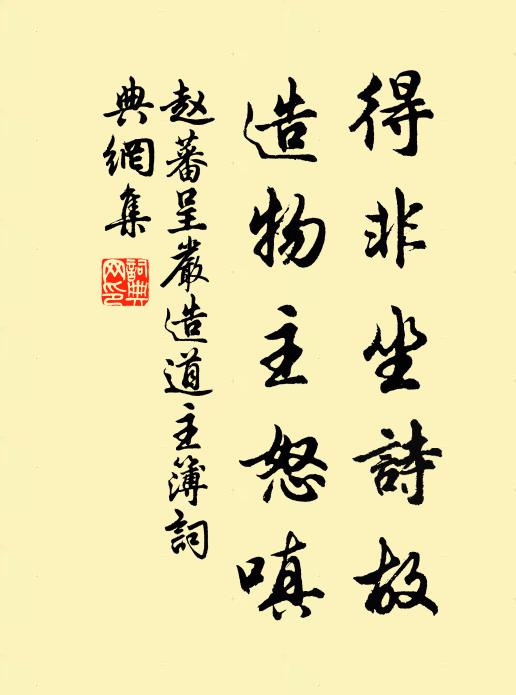 得非坐詩故
造物主怒嗔
赵蕃呈嚴造道主簿詞
典網集
詞典
网印